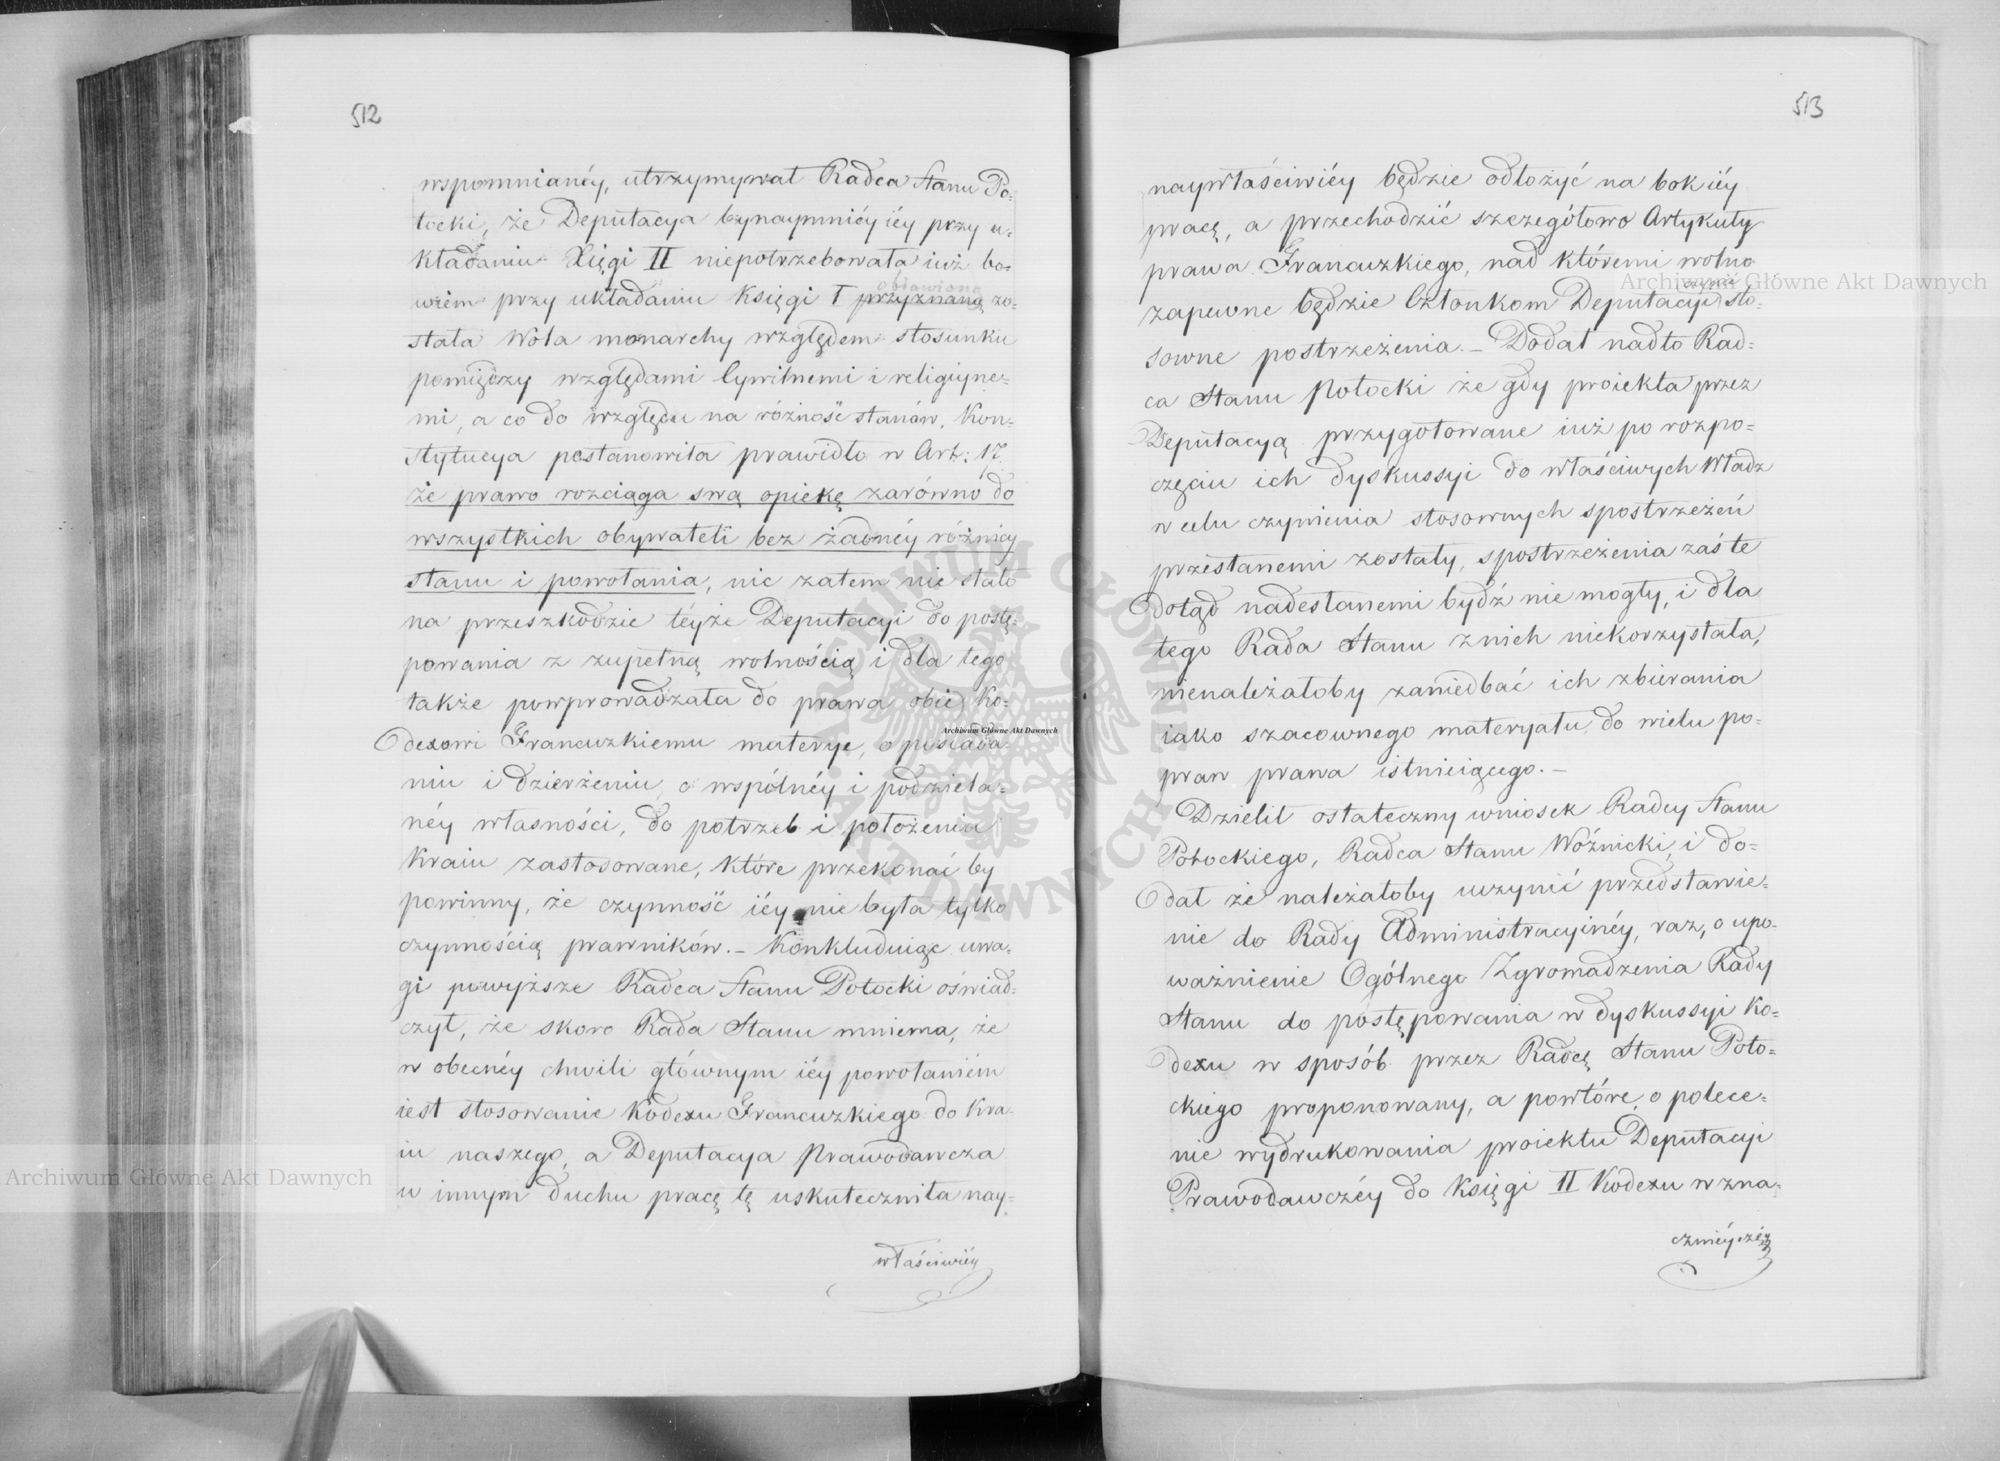 512
wspomnianéy, utrzymywał Radca Stanu Po-
tocki, że Deputacya bynaymniéy iéy przy u-
kładaniu Xięgi II niepotrzebowała iuż bo-
obiawioną
wiem przy układaniu Księgi I przyznaną zo-
stała Wola monarchy względem stosunku
pomiędzy względami Cywilnemi i religiyne-
mi, a co do względu na różność stanów, Kon-
stytucya postanowiła prawidło w Art: 17
że prawo rozciąga swą opiekę zarówno do
wszystkich obywateli bez żadnéy różnicy
stanu i powołania, nic zatem nie stało
na przeszkodzie téyże Deputacyi do postę-
powania z zupełną wolnością i dla tego
także powprowadzała do prawa obce Ko-
dexowi Francuzkiemu materye, o posiada-
niu i dzierżeniu, o wspólnéy i podziela-
néy własności, do potrzeb i położenia
Kraiu zastosowane, które przekonać by
powinny, że czynność iéy nie była tylko
czynnością prawników. – Konkluduiąc uwa-
gi powyższe Radca Stanu Potocki oświad-
czył, że skoro Rada Stanu mniema, że
w obecnéy chwili głównym iéy powołaniem
iest stosowanie Kodexu Francuzkiego do Kra-
iu naszego, a Deputacya Prawodawcza
w innym duchu pracę tę uskuteczniła nay-
właściwiéy
513
naywłaściwiéy będzie odłożyć na bok iéy
pracę, a przechodzić szczegółowo Artykuły
prawa Francuzkiego, nad któremi wolno
czynić
zapewne będzie Członkom Deputacyi sto-
sowne postrzeżenia. – Dodał nadto Rad-
ca Stanu Potocki że gdy proiekta przez
Deputacyą przygotowane iuż po rozpo-
częciu ich dyskussyi do właściwych Władz
w celu czynienia stosownych spostrzeżeń
przesłanemi zostały, spostrzeżenia zaś te
dotąd nadesłanemi bydź nie mogły, i dla
tego Rada Stanu z nich niekorzystała,
nienależałoby zaniedbać ich zbierania
iako szacownego materyału do wielu po-
praw prawa istnieiącego. –
Dzielił ostateczny wniosek Radcy Stanu
Potockiego, Radca Stanu Woźnicki, i do-
dał że należałoby uczynić przedstawie-
nie do Rady Administracyinéy, raz, o upo-
ważnienie Ogólnego Zgromadzenia Rady
Stanu do postępowania w dyskussyi Ko-
dexu w sposób przez Radcę Stanu Poto-
ckiego proponowany, a powtóre, o polece-
nie wydrukowania proiektu Deputacyi
Prawodawczéy do Księgi II Kodexu w zna-
Archiwum Główne Akt Dawnych
Archiwum Główne Akt Dawnych
Archiwum Główne Akt Dawnych
ARCHIWUM GŁÓWNE AKT DAWNYCH